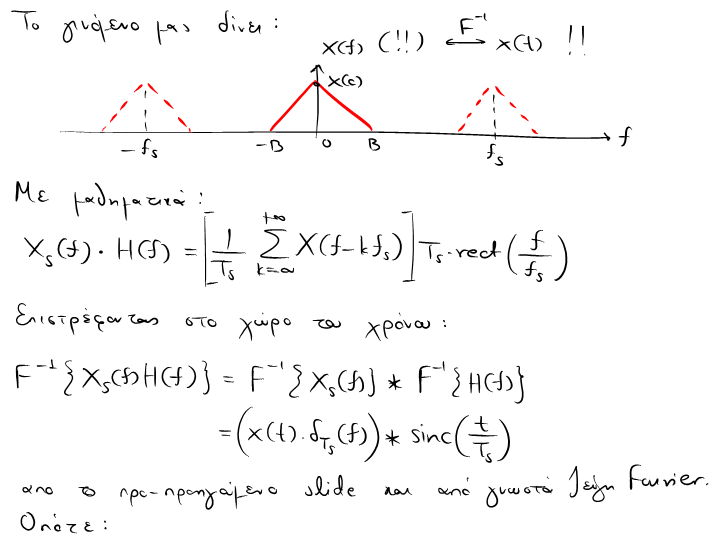 Το γινόμενο μας δίνει:
X(f) (!!) F⁻¹ ⟷ x(t) !!
X(0)
-fs -B 0 B fs f
Με μαθηματικά:
Xs(f) · H(f) = [1/Ts Σ_{k=-∞}^{+∞} X(f-kfs)] Ts·rect(f/fs)
Επιστρέφοντας στο χώρο του χρόνου:
F⁻¹{Xs(f)H(f)} = F⁻¹{Xs(f)} * F⁻¹{H(f)}
= (x(t)·δ_Ts(f)) * sinc(t/Ts)
απο το προ-προηγούμενο slide και από γνωστά ζεύγη Fourier.
Οπότε: